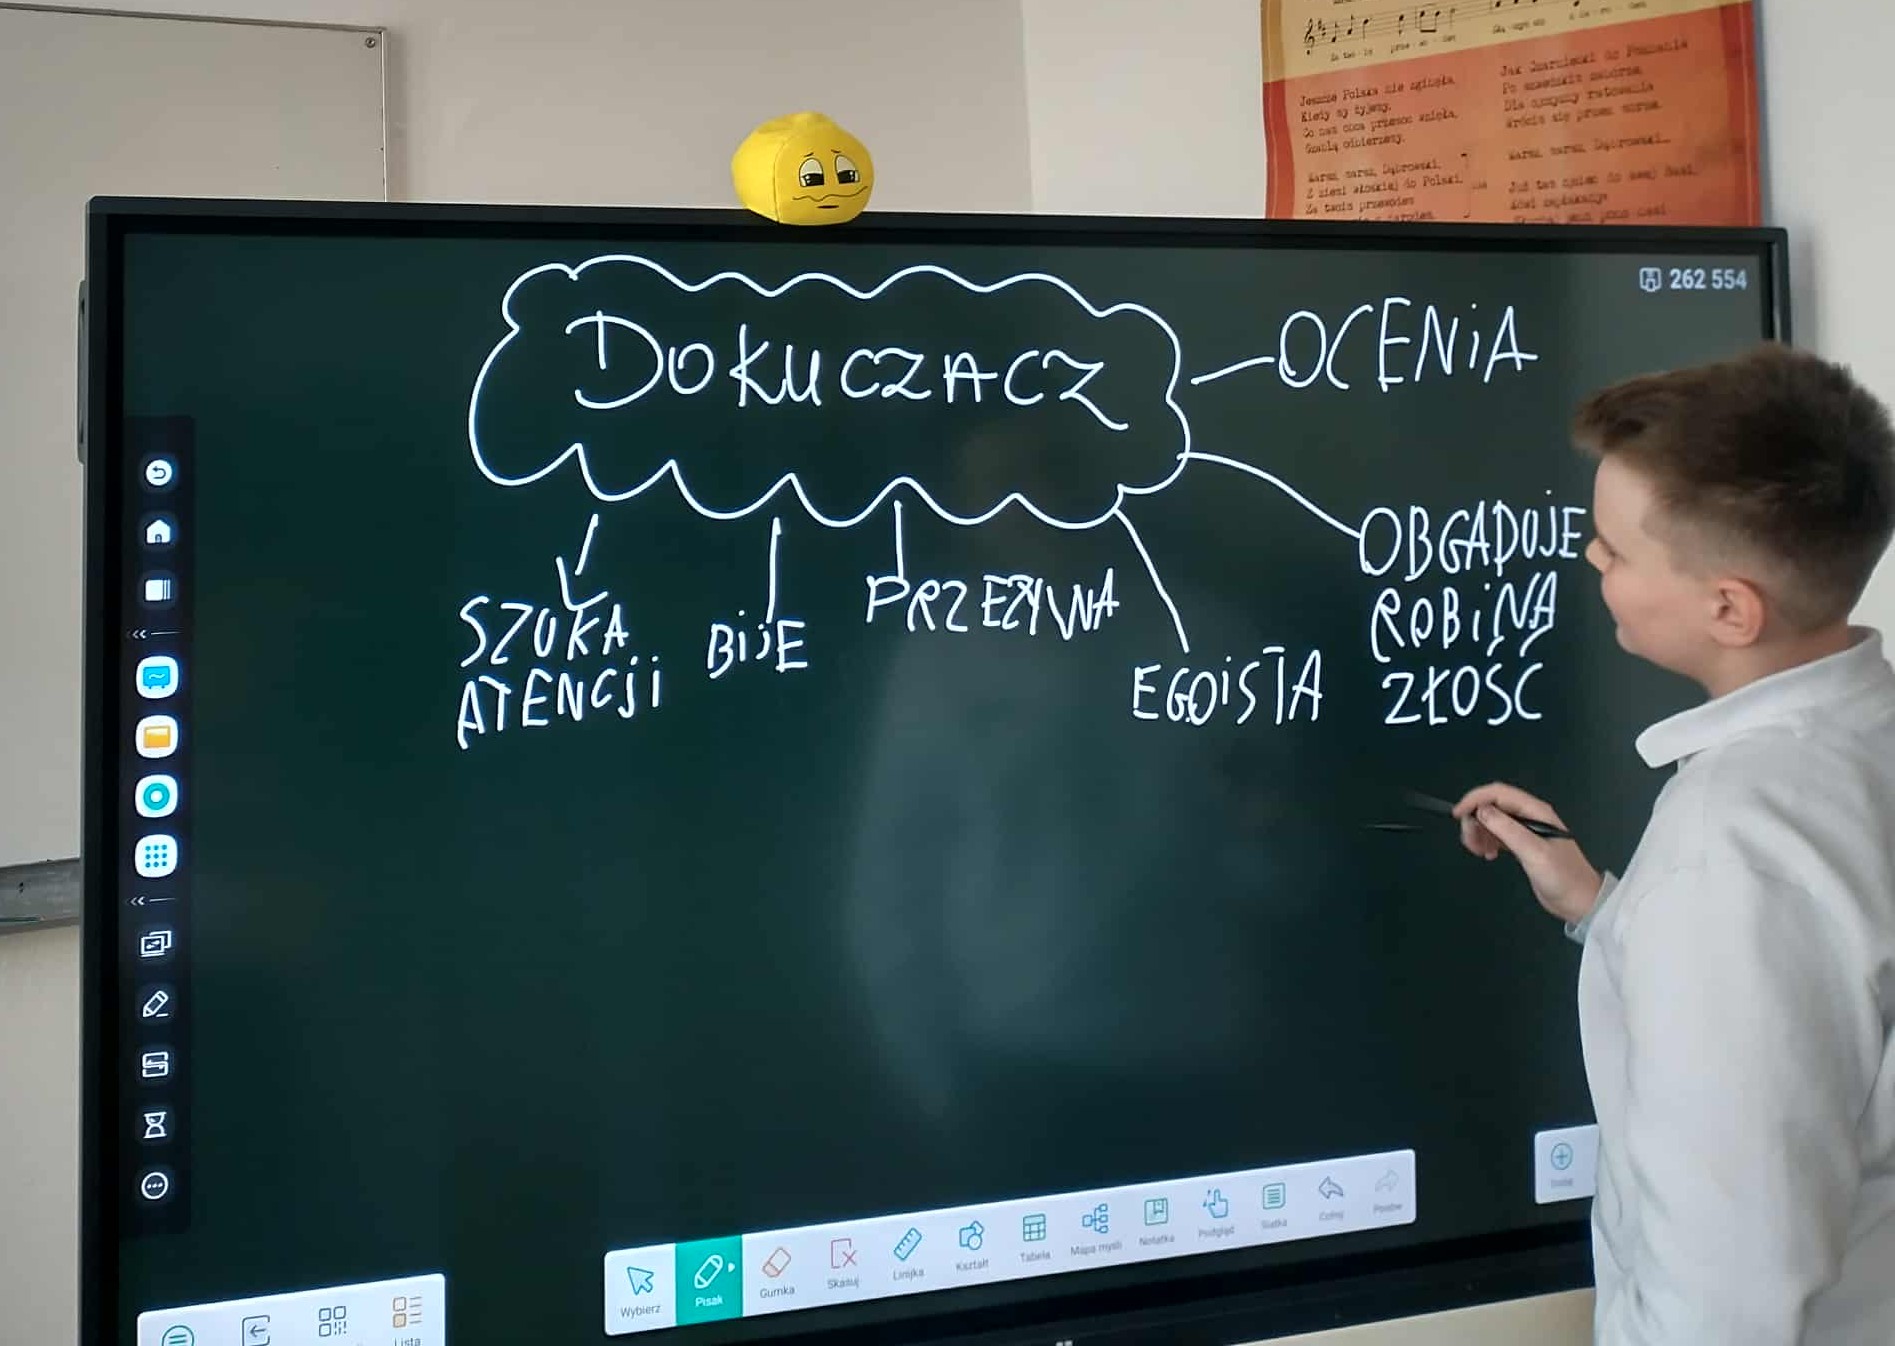 Jeszcze Polska nie zginęła,
Kiedy my żyjemy.
Co nam obca przemoc wzięła,
Szablą odbierzemy.
Marsz, marsz, Dąbrowski,
Z ziemi włoskiej do Polski,
Za twoim przewodem
Jak Czarniecki do Poznania
Po szwedzkim zaborze,
Dla ojczyzny ratowania
Wrócim się przez morze.
Marsz, marsz, Dąbrowski…
262 554
DOKUCZACZ
OCENIA
OBGADUJE
ROBI NA
ZŁOŚĆ
SZUKA
ATENCJI
BIJE
PRZEZYWA
EGOISTA
Wybierz
Pisak
Gumka
Skasuj
Linijka
Kształt
Tabela
Mapa myśli
Notatka
Podgląd
Siatka
Cofnij
Ponów
Dodaj
Lista